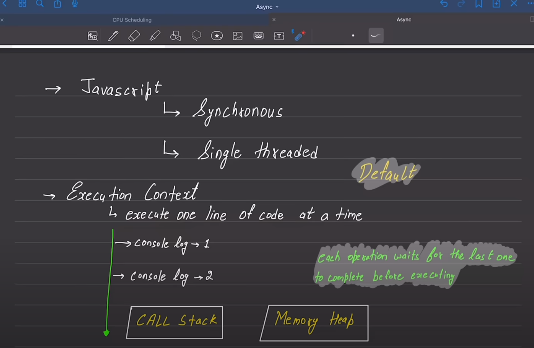 Async
CPU Scheduling
Async
→ Javascript
↳ Synchronous
↳ Single threaded
Default
→ Execution Context
↳ execute one line of code at a time
→ console log → 1
each operation waits for the last one
to complete before executing
→ console log → 2
CALL Stack
Memory Heap